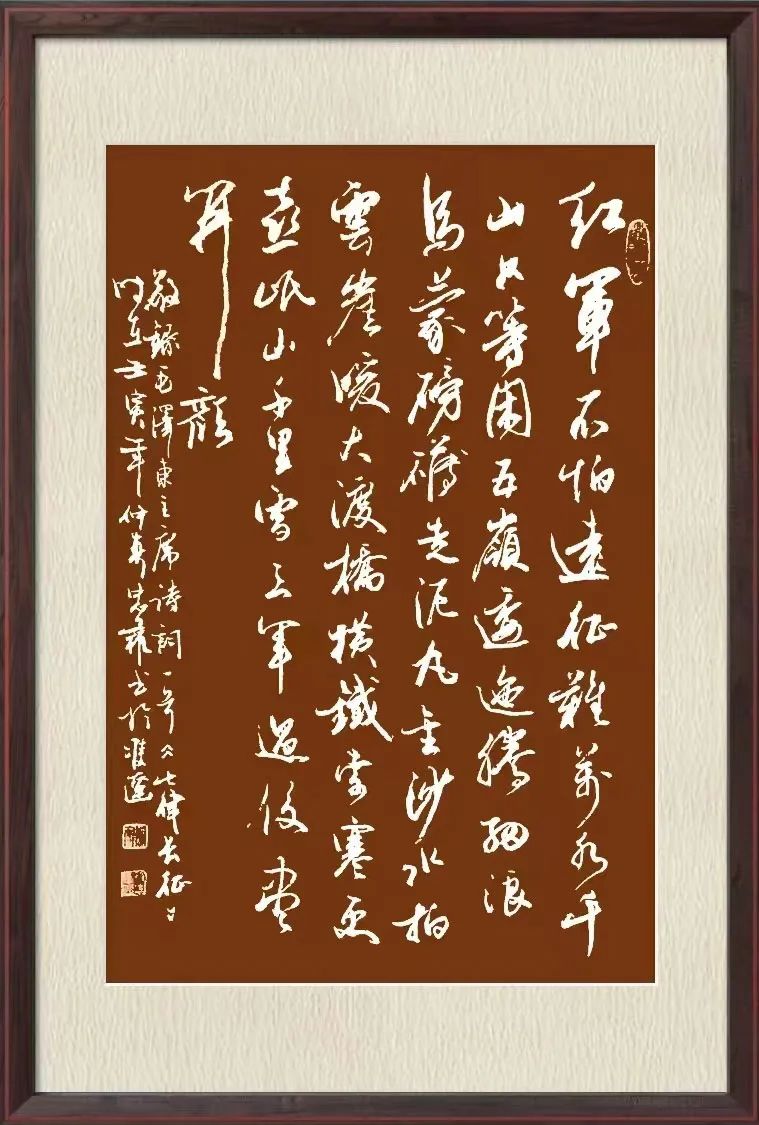 紅軍不怕遠征難萬水千
山只等閑五嶺逶迤騰細浪
烏蒙磅礴走泥丸金沙水拍
雲崖暖大渡橋橫鐵索寒更
喜岷山千里雪三軍過後盡
開顏
敬錄毛澤東主席詩詞一首《七律長征》
時在壬寅年仲春忠書於淮